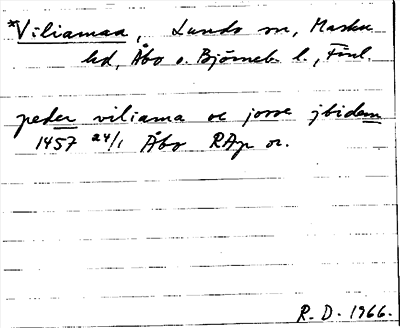 *Viliamaa, Lundo sn, Masku
hd, Åbo o. Björneb. l., Finl.
peder viliama oc josse jbidem
1457 24/1 Åbo RAp or.
R. D. 1966.